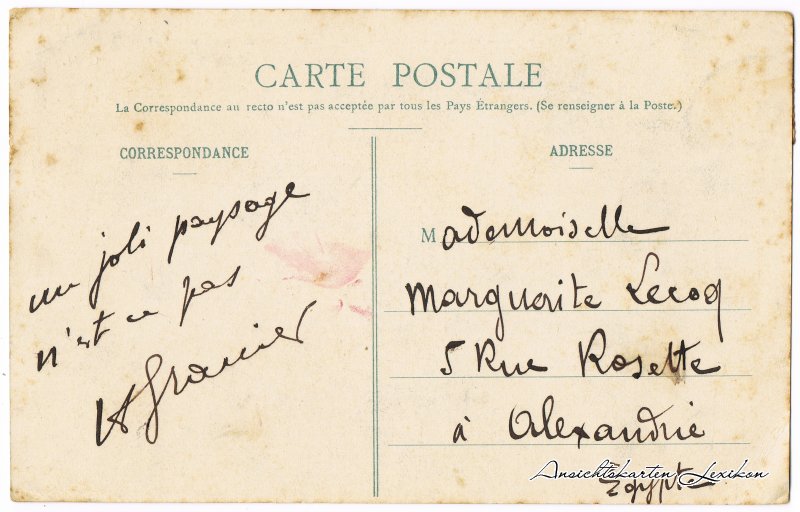 CARTE POSTALE
La Correspondance au recto n'est pas acceptée par tous les Pays Étrangers. (Se renseigner à la Poste.)
CORRESPONDANCE
un joli paysage
n'est ce pas
ADRESSE
Mademoiselle
Marguerite Lecoq
5 Rue Rosette
à Alexandrie
Egypte
Ansichtskarten Lexikon